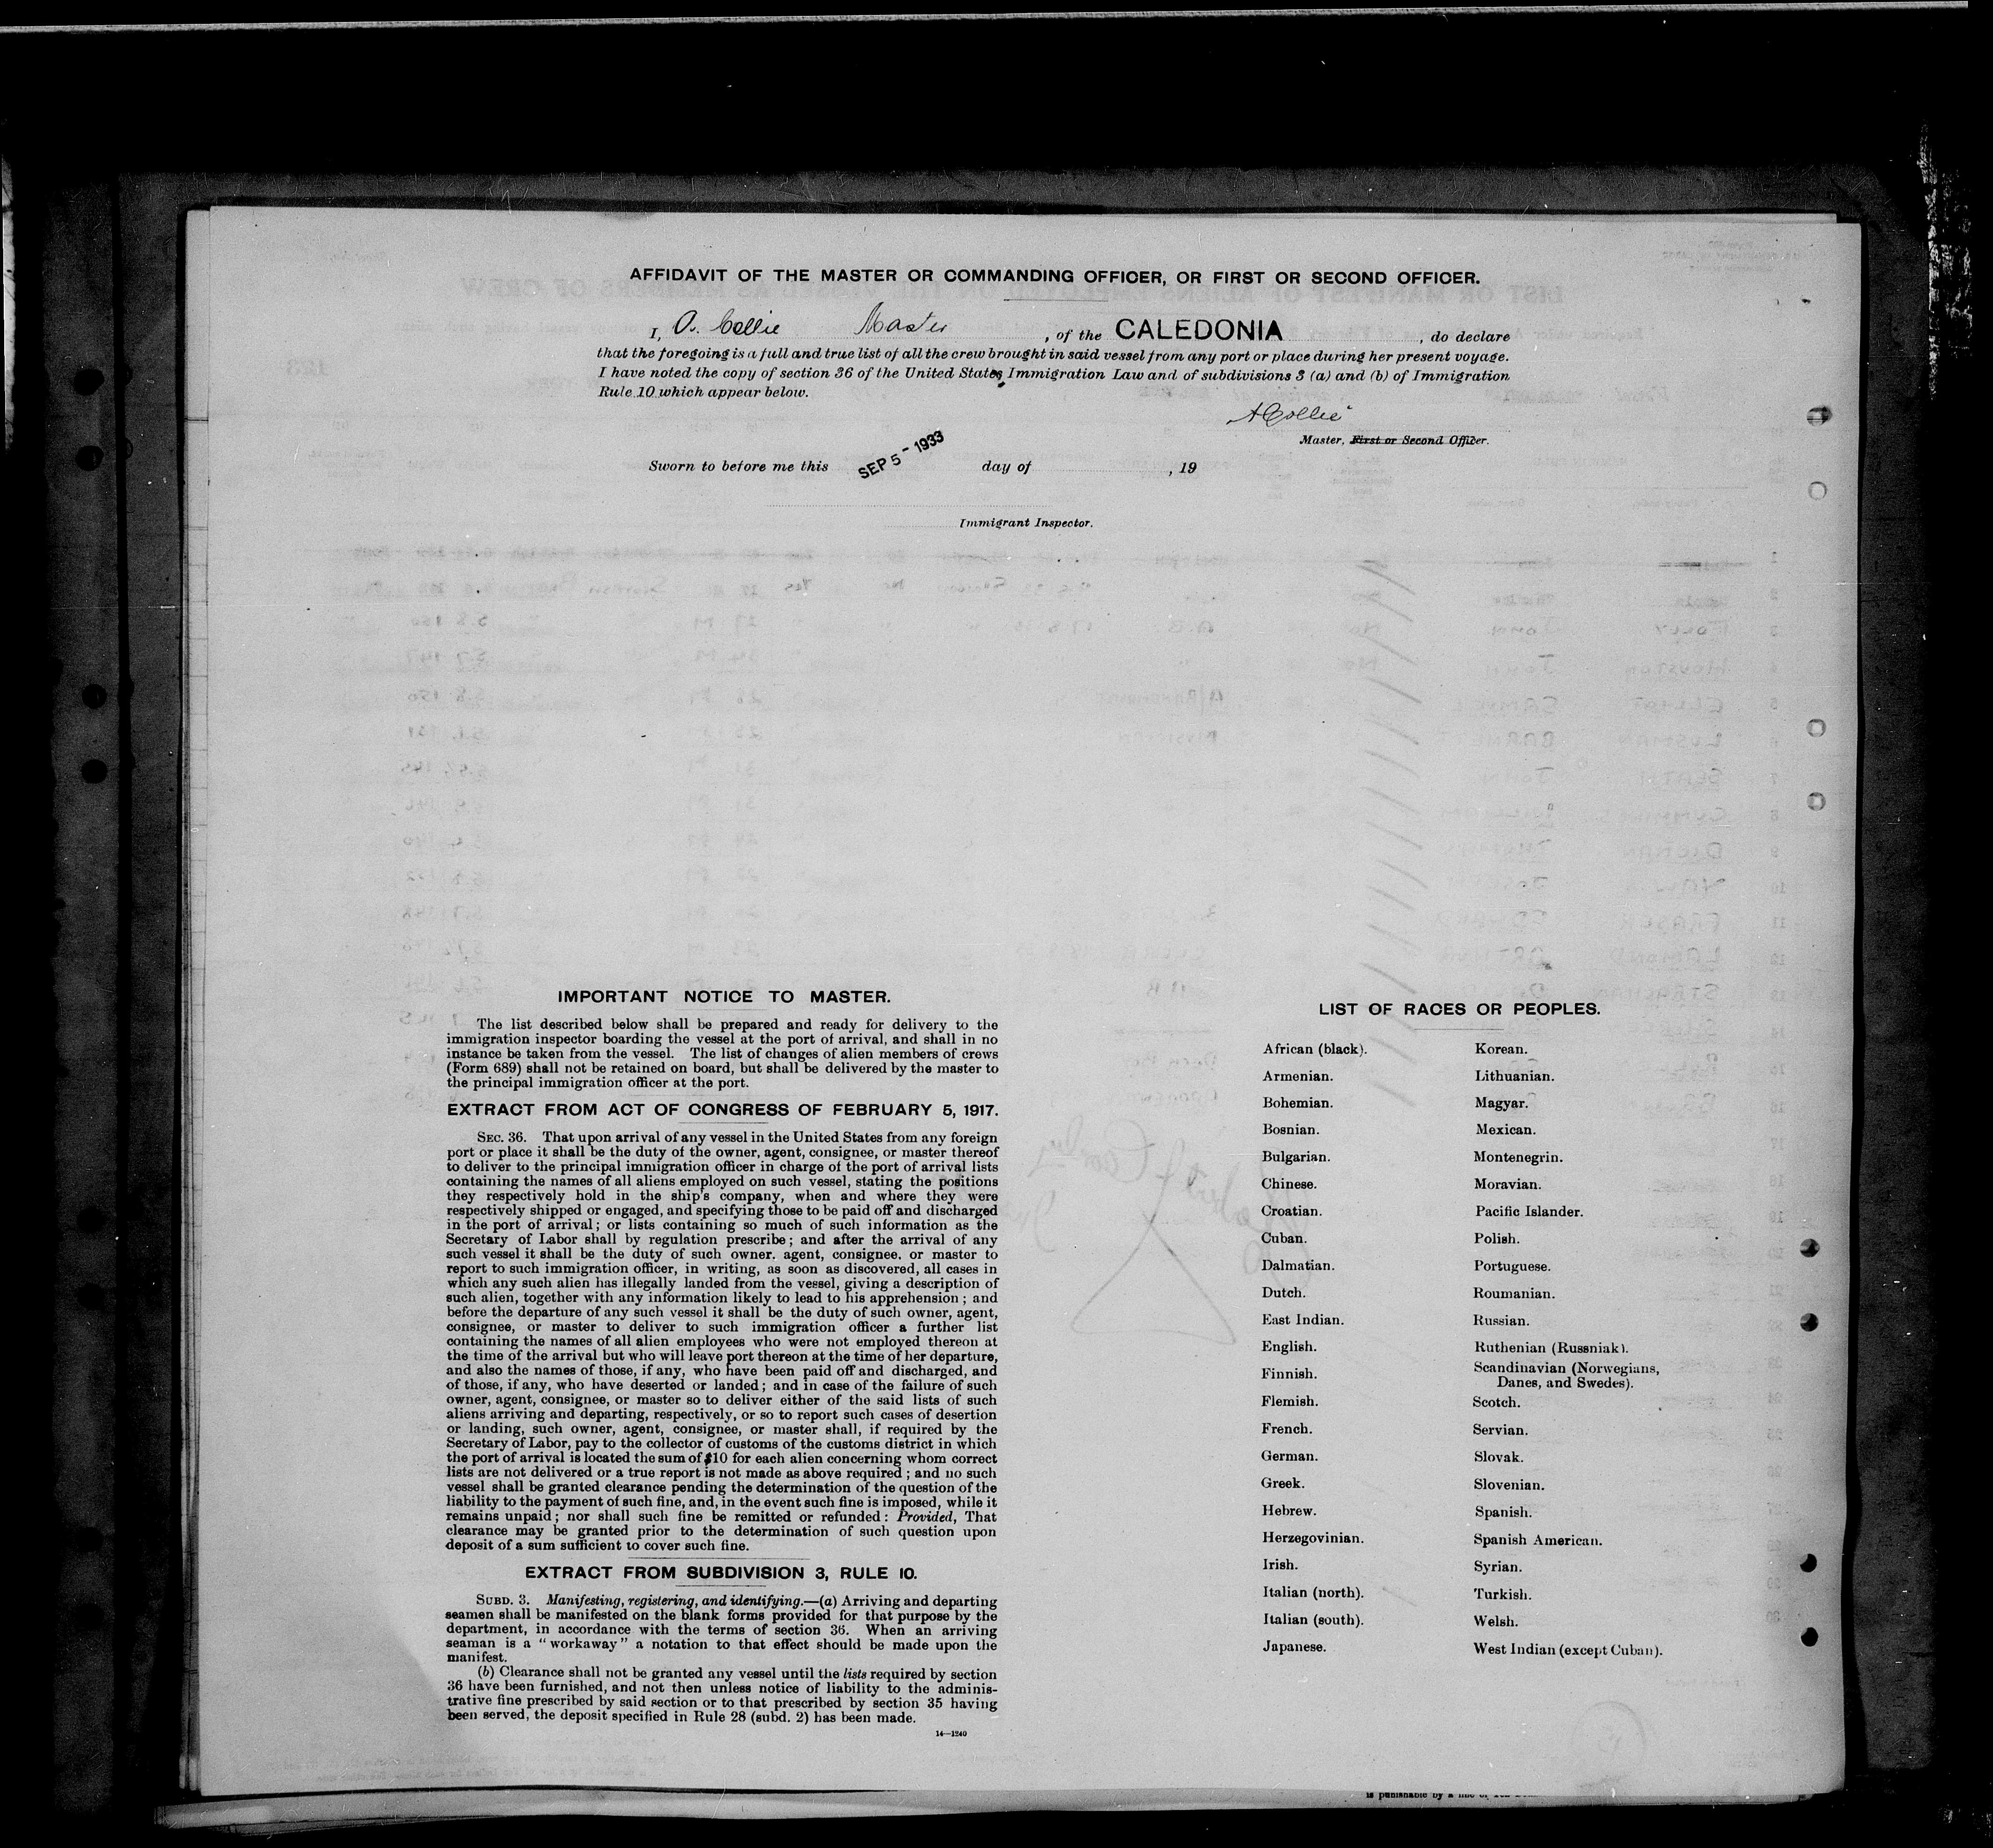 AFFIDAVIT OF THE MASTER OR COMMANDING OFFICER, OR FIRST OR SECOND OFFICER.
I, A. Collie Master, of the CALEDONIA, do declare
that the foregoing is a full and true list of all the crew brought in said vessel from any port or place during her present voyage.
I have noted the copy of section 36 of the United States Immigration Law and of subdivisions 3 (a) and (b) of Immigration
Rule 10 which appear below.
A Collie
Master, First or Second Officer.
Sworn to before me this SEP 5 - 1933 day of , 19
Immigrant Inspector.
IMPORTANT NOTICE TO MASTER.
The list described below shall be prepared and ready for delivery to the
immigration inspector boarding the vessel at the port of arrival, and shall in no
instance be taken from the vessel. The list of changes of alien members of crews
(Form 689) shall not be retained on board, but shall be delivered by the master to
the principal immigration officer at the port.
EXTRACT FROM ACT OF CONGRESS OF FEBRUARY 5, 1917.
SEC. 36. That upon arrival of any vessel in the United States from any foreign
port or place it shall be the duty of the owner, agent, consignee, or master thereof
to deliver to the principal immigration officer in charge of the port of arrival lists
containing the names of all aliens employed on such vessel, stating the positions
they respectively hold in the ship's company, when and where they were
respectively shipped or engaged, and specifying those to be paid off and discharged
in the port of arrival; or lists containing so much of such information as the
Secretary of Labor shall by regulation prescribe; and after the arrival of any
such vessel it shall be the duty of such owner, agent, consignee, or master to
report to such immigration officer, in writing, as soon as discovered, all cases in
which any such alien has illegally landed from the vessel, giving a description of
such alien, together with any information likely to lead to his apprehension; and
before the departure of any such vessel it shall be the duty of such owner, agent,
consignee, or master to deliver to such immigration officer a further list
containing the names of all alien employees who were not employed thereon at
the time of the arrival but who will leave port thereon at the time of her departure,
and also the names of those, if any, who have been paid off and discharged, and
of those, if any, who have deserted or landed; and in case of the failure of such
owner, agent, consignee, or master so to deliver either of the said lists of such
aliens arriving and departing, respectively, or so to report such cases of desertion
or landing, such owner, agent, consignee, or master shall, if required by the
Secretary of Labor, pay to the collector of customs of the customs district in which
the port of arrival is located the sum of $10 for each alien concerning whom correct
lists are not delivered or a true report is not made as above required; and no such
vessel shall be granted clearance pending the determination of the question of the
liability to the payment of such fine, and, in the event such fine is imposed, while it
remains unpaid; nor shall such fine be remitted or refunded: Provided, That
clearance may be granted prior to the determination of such question upon
deposit of a sum sufficient to cover such fine.
EXTRACT FROM SUBDIVISION 3, RULE 10.
SUBD. 3. Manifesting, registering, and identifying.—(a) Arriving and departing
seamen shall be manifested on the blank forms provided for that purpose by the
department, in accordance with the terms of section 36. When an arriving
seaman is a "workaway" a notation to that effect should be made upon the
manifest.
(b) Clearance shall not be granted any vessel until the lists required by section
36 have been furnished, and not then unless notice of liability to the adminis-
trative fine prescribed by said section or to that prescribed by section 35 having
been served, the deposit specified in Rule 28 (subd. 2) has been made.
14—1240
LIST OF RACES OR PEOPLES.
African (black).
Armenian.
Bohemian.
Bosnian.
Bulgarian.
Chinese.
Croatian.
Cuban.
Dalmatian.
Dutch.
East Indian.
English.
Finnish.
Flemish.
French.
German.
Greek.
Hebrew.
Herzegovinian.
Irish.
Italian (north).
Italian (south).
Japanese.
Korean.
Lithuanian.
Magyar.
Mexican.
Montenegrin.
Moravian.
Pacific Islander.
Polish.
Portuguese.
Roumanian.
Russian.
Ruthenian (Russniak).
Scandinavian (Norwegians,
Danes, and Swedes).
Scotch.
Servian.
Slovak.
Slovenian.
Spanish.
Spanish American.
Syrian.
Turkish.
Welsh.
West Indian (except Cuban).
is punishable by a